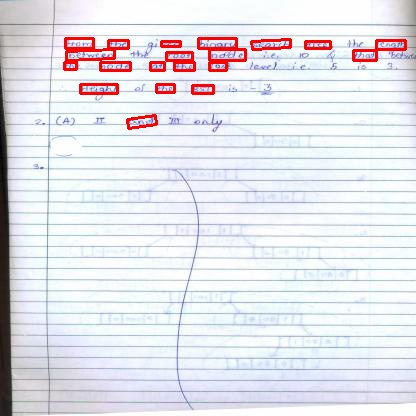 From the given binary search tree the length
between the root node i.e. 10 & that between
the node at the last level i.e. 5 is 3.
∴ Height of the tree is - 3
2. (A) II and III only
3.